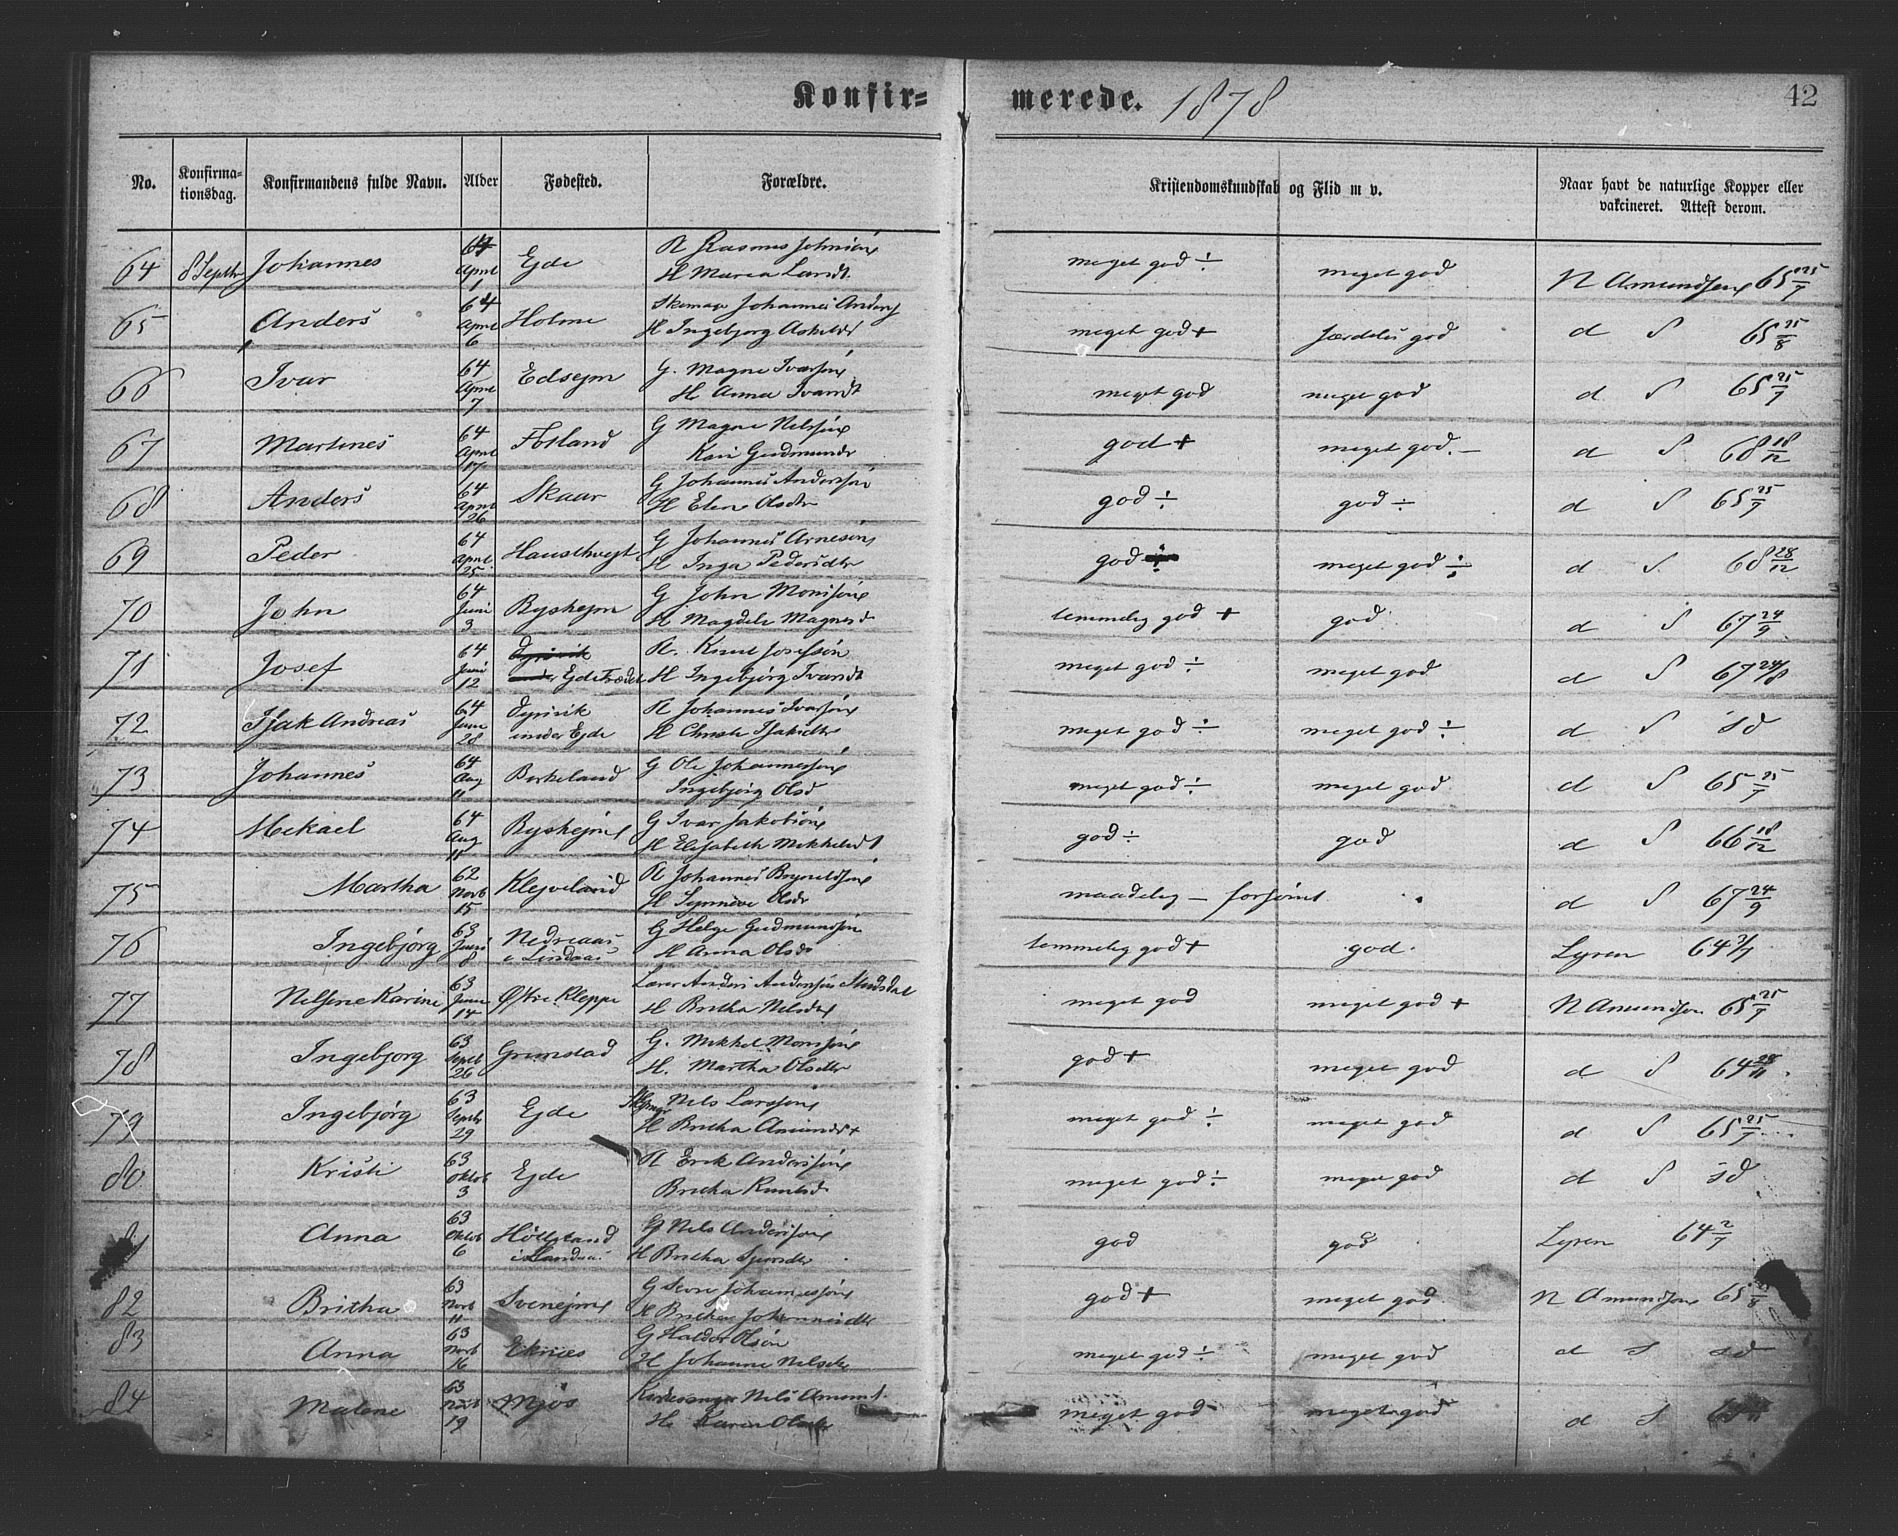 Konfir= merede. 1878 42
No. Konfirma-tionsdag. Konfirmandens fulde Navn. Alder Fødested. Forældre. Kristendomskundskab og Flid m v. Naar havt de naturlige Kopper eller vakcineret. Attest derom.
64 8 Septbr Johannes 64 April 1 Ejde R Rasmus Johnsøn H Maria Larsdt. meget god ÷ meget god N Amundsen 65 25/7
65 Anders 64 April 6 Holme Johannes Anders H Ingebjørg Askildsd meget god + særdeles god d S 65 25/8
66 Ivar 64 April 7 Edsejm G. Magne Ivarsøn H Anna Ivarsdt meget god meget god d S 65 25/7
67 Martines 64 April 17 Fosland G Magne Nilssøn Kari Gudmundsd god + meget god. - d S 68 18/12
68 Anders 64 April 26 Skaar G Johannes Anderssøn H Elen Olsdtr god ÷ god ÷ d S 65 25/7
69 Peder 64 April 25 Hausthvegt G Johannes Arnesøn H Inga Pedersdtr god ÷ meget god ÷ d S. 68 28/12
70 John 64 Juni 3 Byshejm G John Monssøn H Magdele Magnesd temmelig god + god d S 67 24/9
71 Josef 64 Juni 12 Ejde R. Knud Josefsøn H Ingebjørg Ivarsdt meget god ÷ meget god d S 67 24/8
72 Isak Andreas 64 Juni 28 Dyrivik under Ejde R Johannes Ivarsøn H Christi Isaksdtr meget god ÷ meget god ÷ d S sd
73 Johannes 64 Aug 11 Birkeland G Ole Johannessøn Ingebjørg Olsd meget god ÷ meget god d S 65 25/7
74 Mekael 64 Aug 11 Byshejm G Ivar Jakobsøn H Elisabeth Mikkelsdt god ÷ god d S 66 18/12
75 Martha 62 Novb 15 Klejveland R Johannes Brynildsøn H Synneve Olsdr maadelig - forsømt d S 67 24/9
76 Ingebjørg 63 Juni 8 Nedreaas i Lindaas G Helge Gudmundsøn H Anna Olsd temmelig god + god. Lyren 64 2/7
77 Nilsine Karine 63 Juni 14 Østre Kleppe Lærer Anders Anderssøn H Britha Nilsdtr meget god meget god + N Amundsen 65 25/7
78 Ingebjorg 63 Septb 26 Grimstad G. Mikkel Monssøn H. Martha Olsdtr god + meget god d S 64 28/11
79 Ingebjørg 63 Septbr 29 Ejde Nils Larssøn H Britha Amundsd meget god ÷ meget god d S 65 25/7
80 Kristi 63 Oktob 3 Ejde R Erik Anderssøn Britha Knudsd meget god ÷ meget god d S sd
Anna 63 Oktob 6 G Nils Anderssøn H Britha god god Lyren 64 2/7
82 Britha 63 Novb 11 Svenejm G Johannessøn H Britha Johannesdtr god + meget god N Amundsen 65 25/8
83 Anna 63 Novb 16 Eknes G Haldor Olsøn H Johanne Nilsdtr meget god ÷ meget god d S sd
84 Malene 63 Novb 19 Mjøs Kirkesanger Nils Amundt. H Karen Olsdtr meget god meget god d S